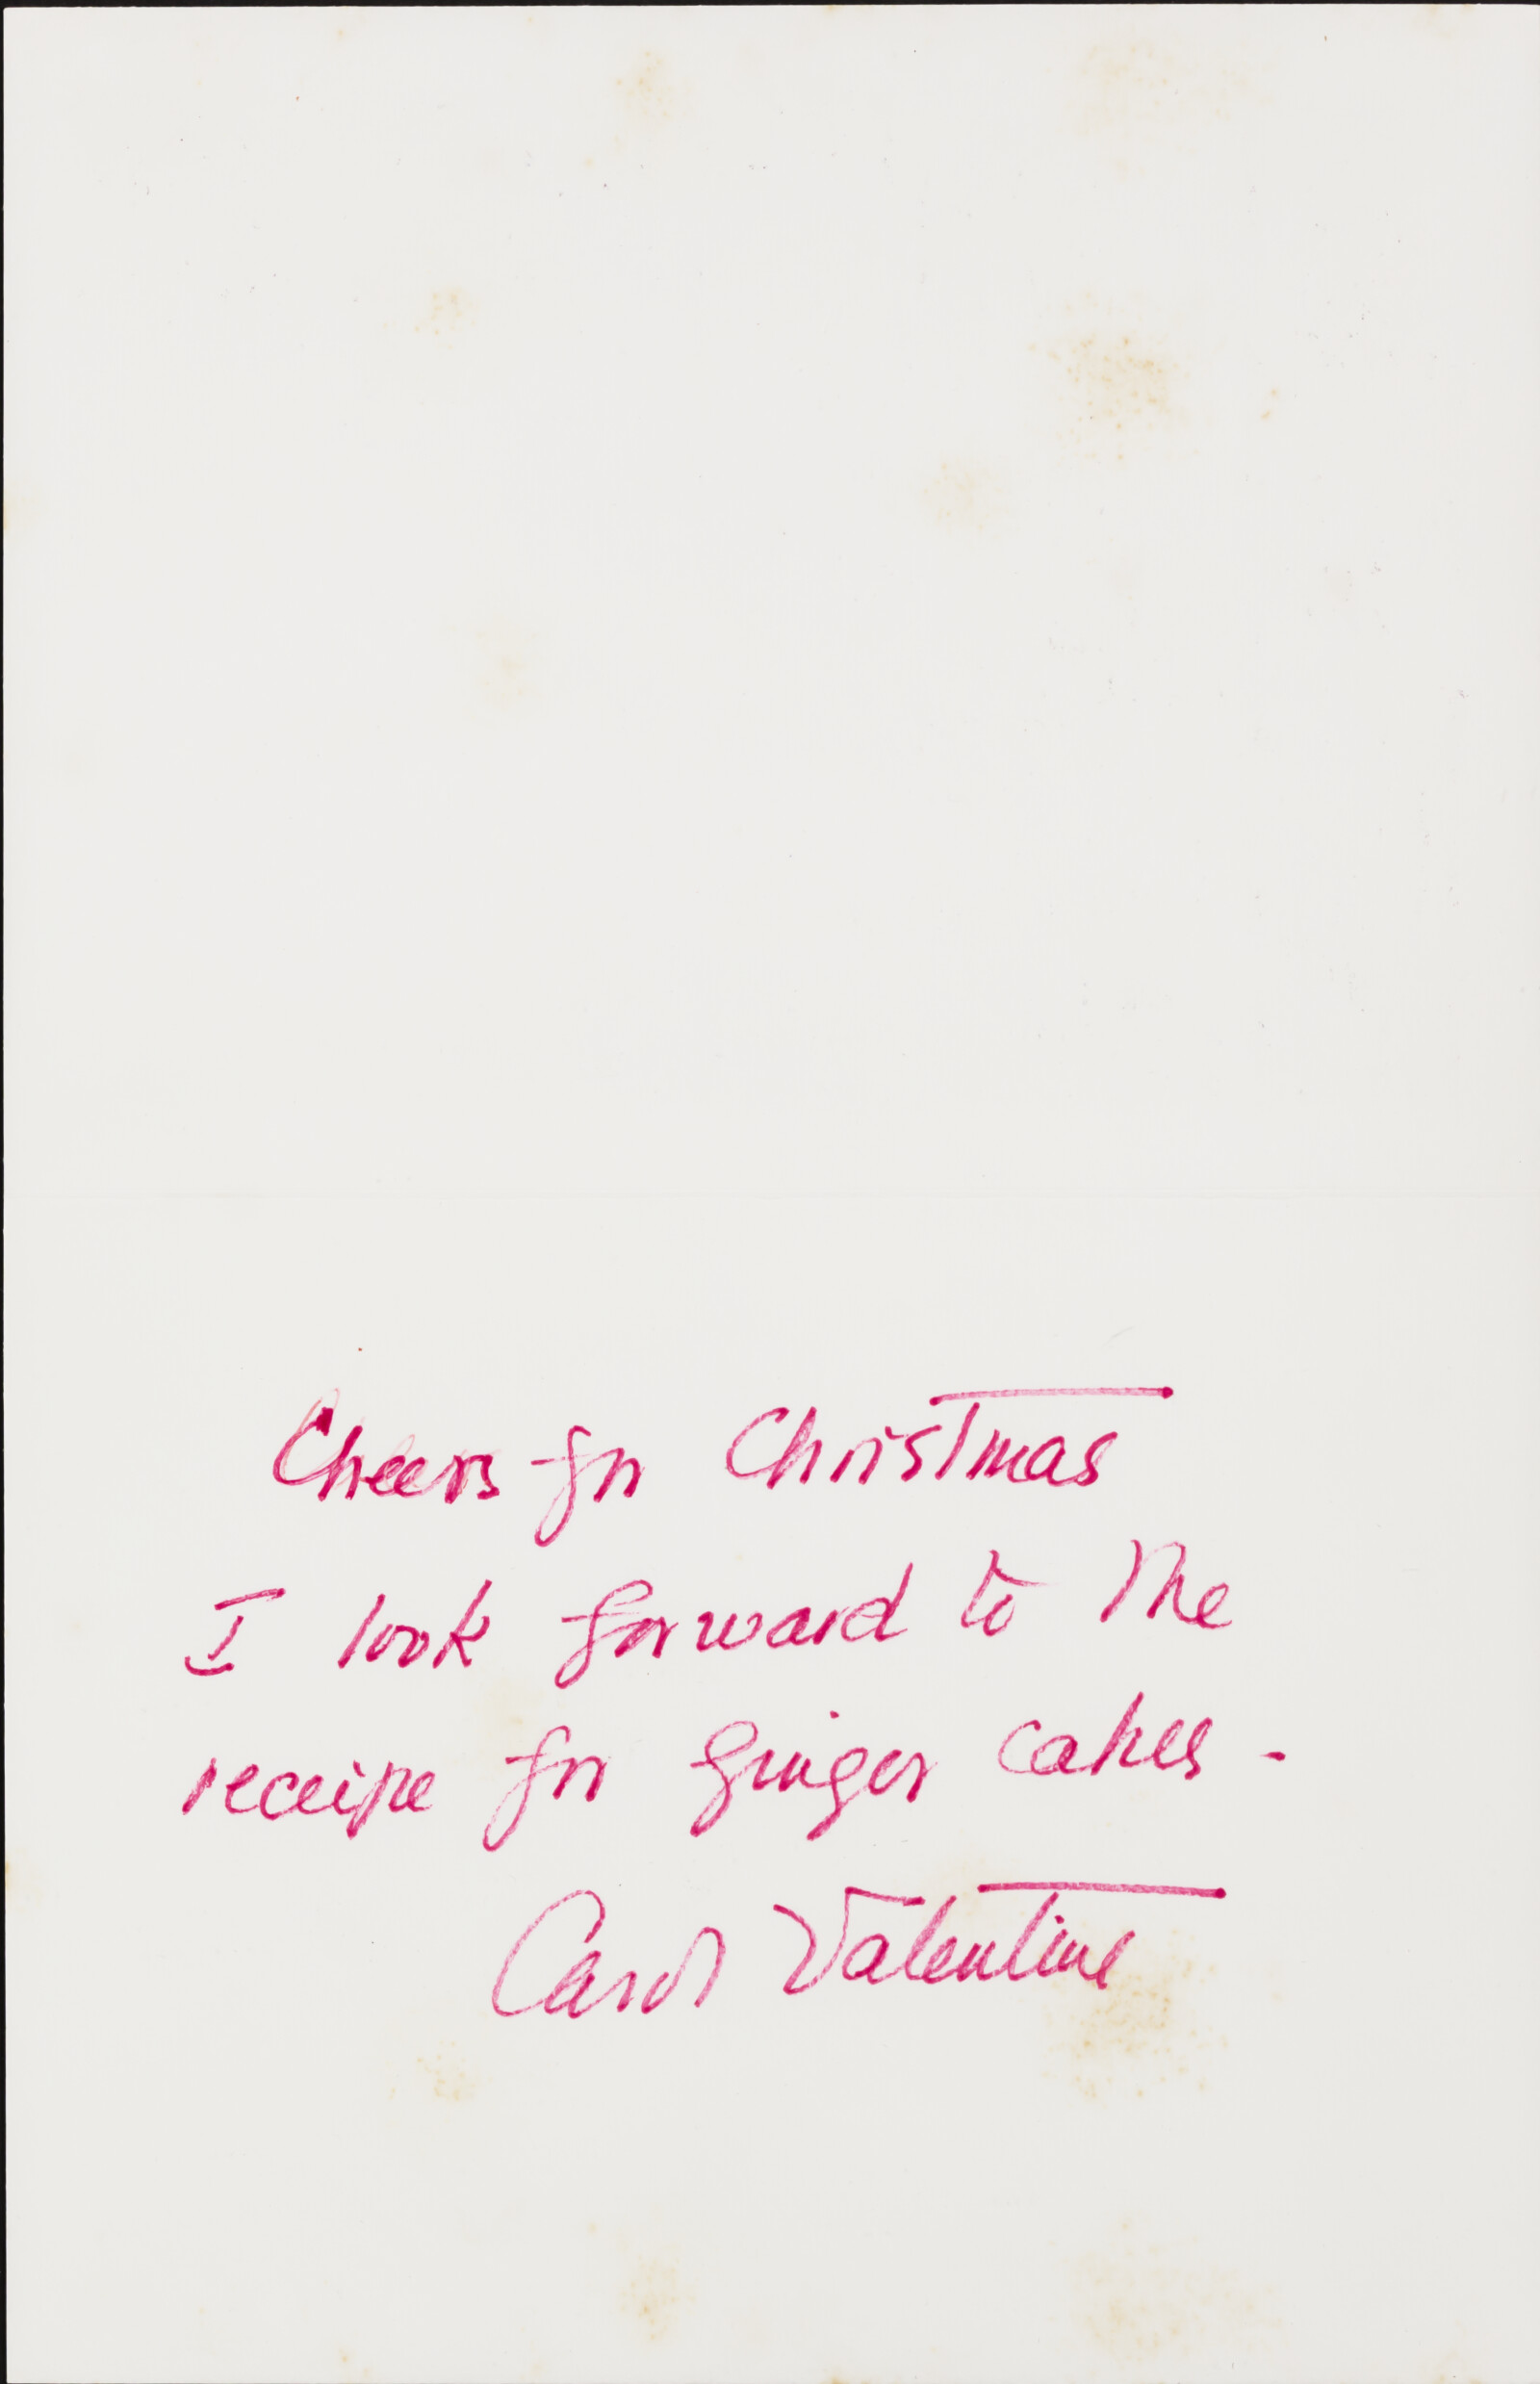 Cheers for Christmas
I look forward to the
receipe for ginger cakes -
Carol Valentine